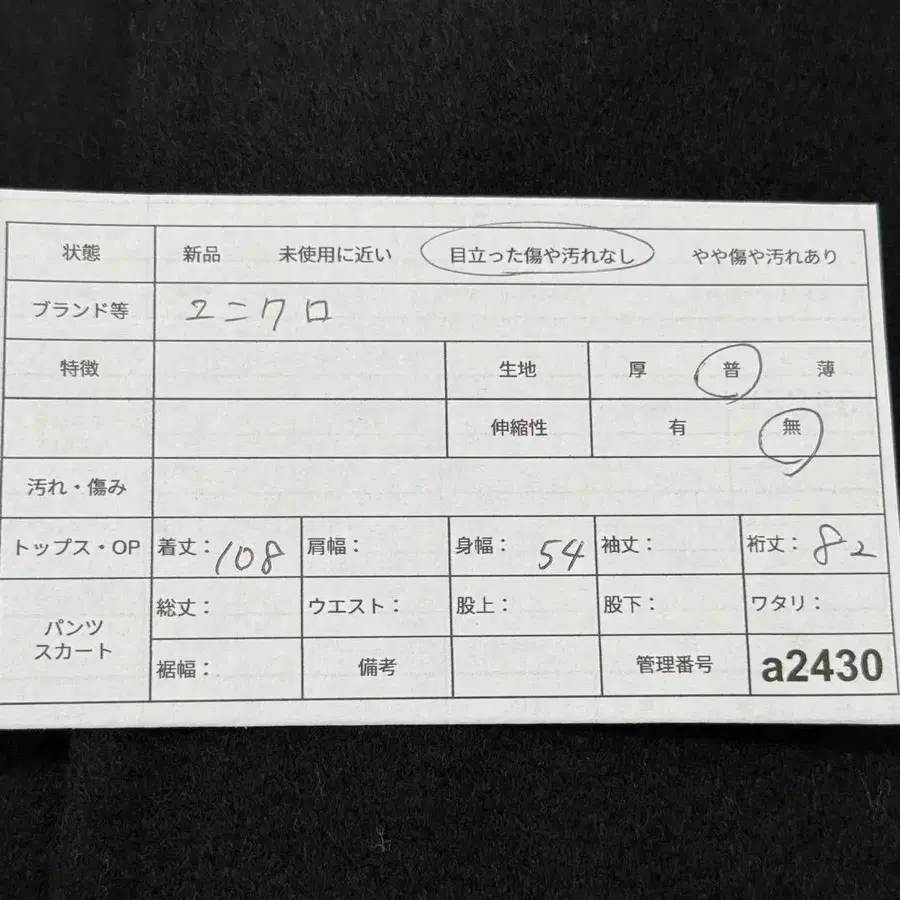 状態 新品 未使用に近い 目立った傷や汚れなし やや傷や汚れあり
ブランド等 ユニクロ
特徴 生地 厚 普 薄
伸縮性 有 無
汚れ・傷み
トップス・OP 着丈：108 肩幅： 身幅：54 袖丈： 裄丈：82
パンツ スカート 総丈： ウエスト： 股上： 股下： ワタリ：
裾幅： 備考 管理番号 a2430